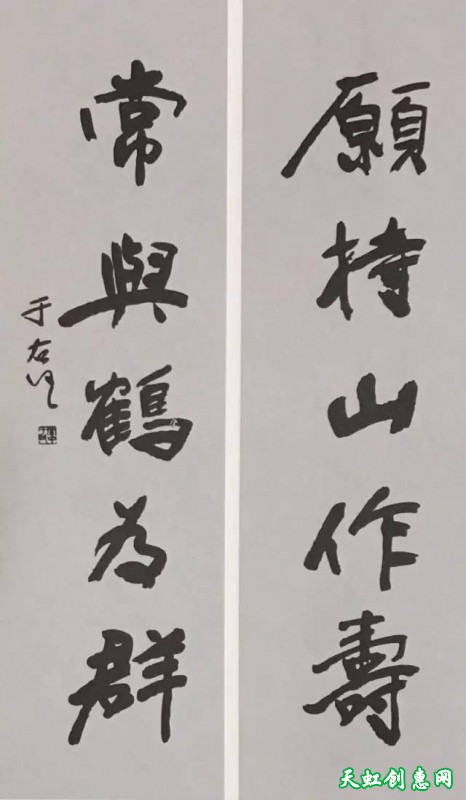 願持山作壽
常與鶴為群
于右任
天虹创惠网